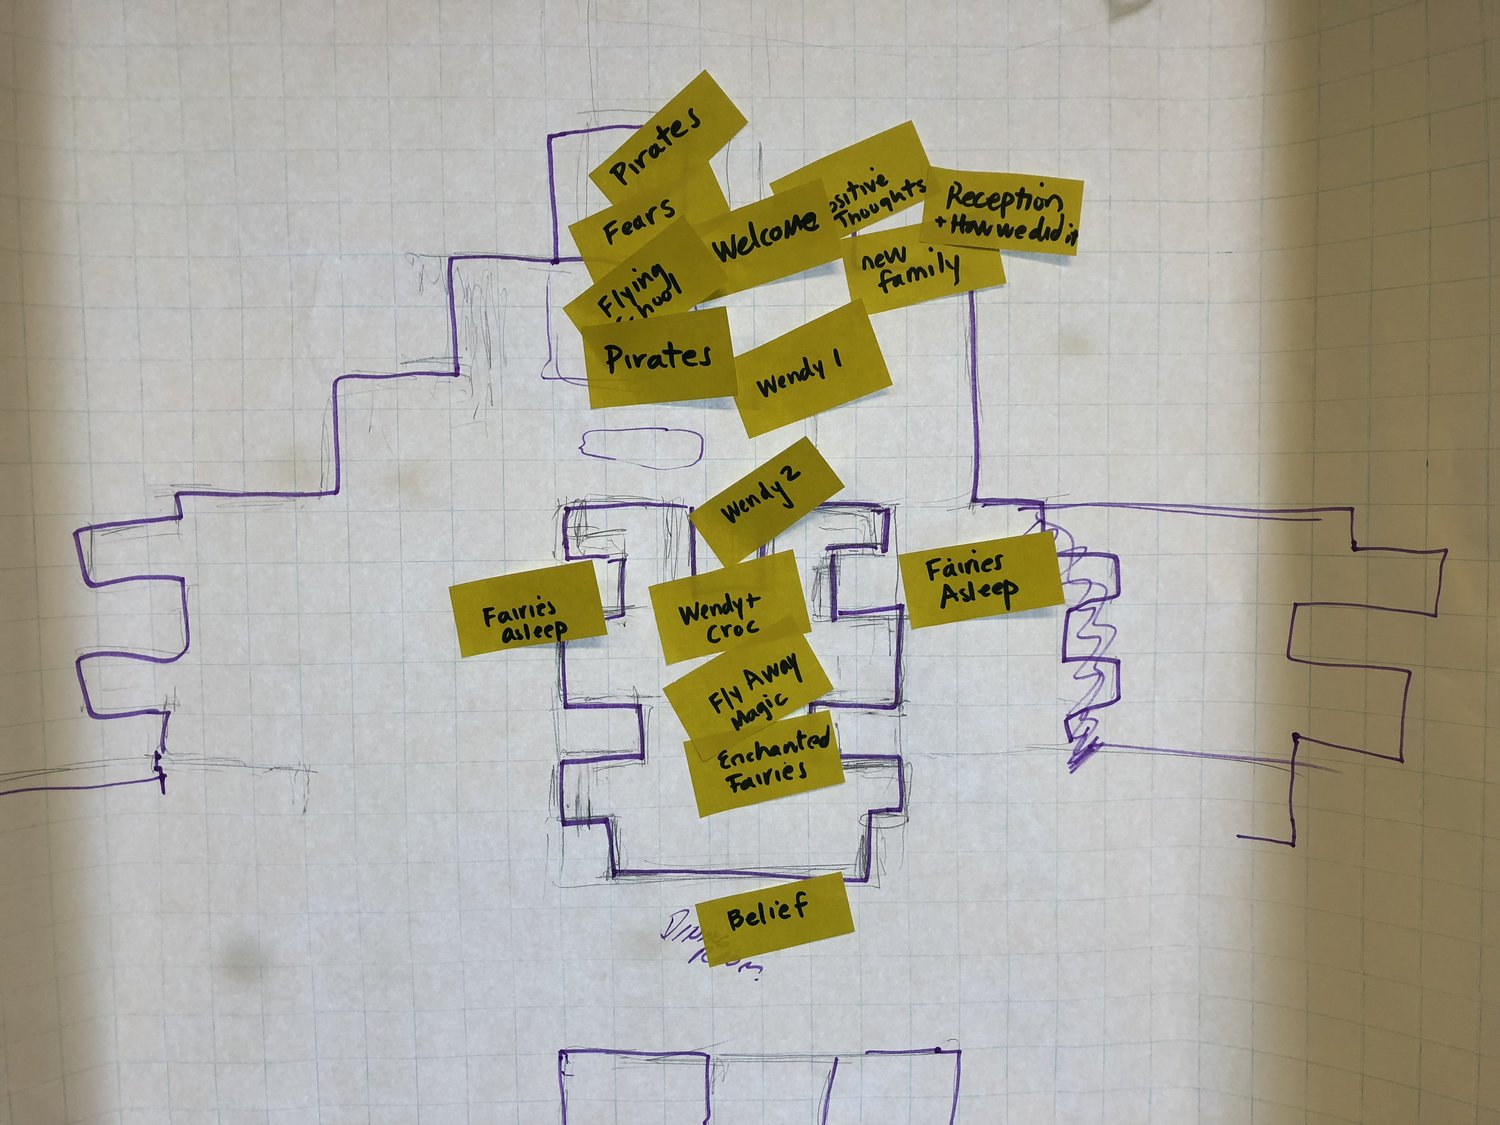 Pirates
Fears
Flying
Pirates
Welcome
ositive
Thoughts
Reception
+ How we did it
new
family
Wendy 1
Wendy 2
Fairies
asleep
Wendy +
Croc
Fairies
Asleep
Fly Away
Magic
Enchanted
Fairies
Belief